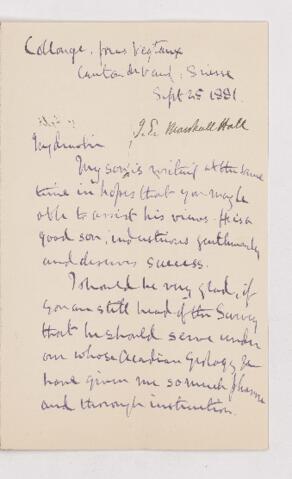 Collonge, près Veytaux
Canton de Vaud, Suisse
Sept 25 1881.
J. E. Marshall Hall
My dear Sir
My son is writing at the same
time in hopes that you may be
able to assist his views. He is a
good son, industrious, gentlemanly
and deserves success.
I should be very glad, if
you are still head of the Survey
that he should serve under
one whose Acadian Geology &c
have given me so much pleasure
and thorough instruction.